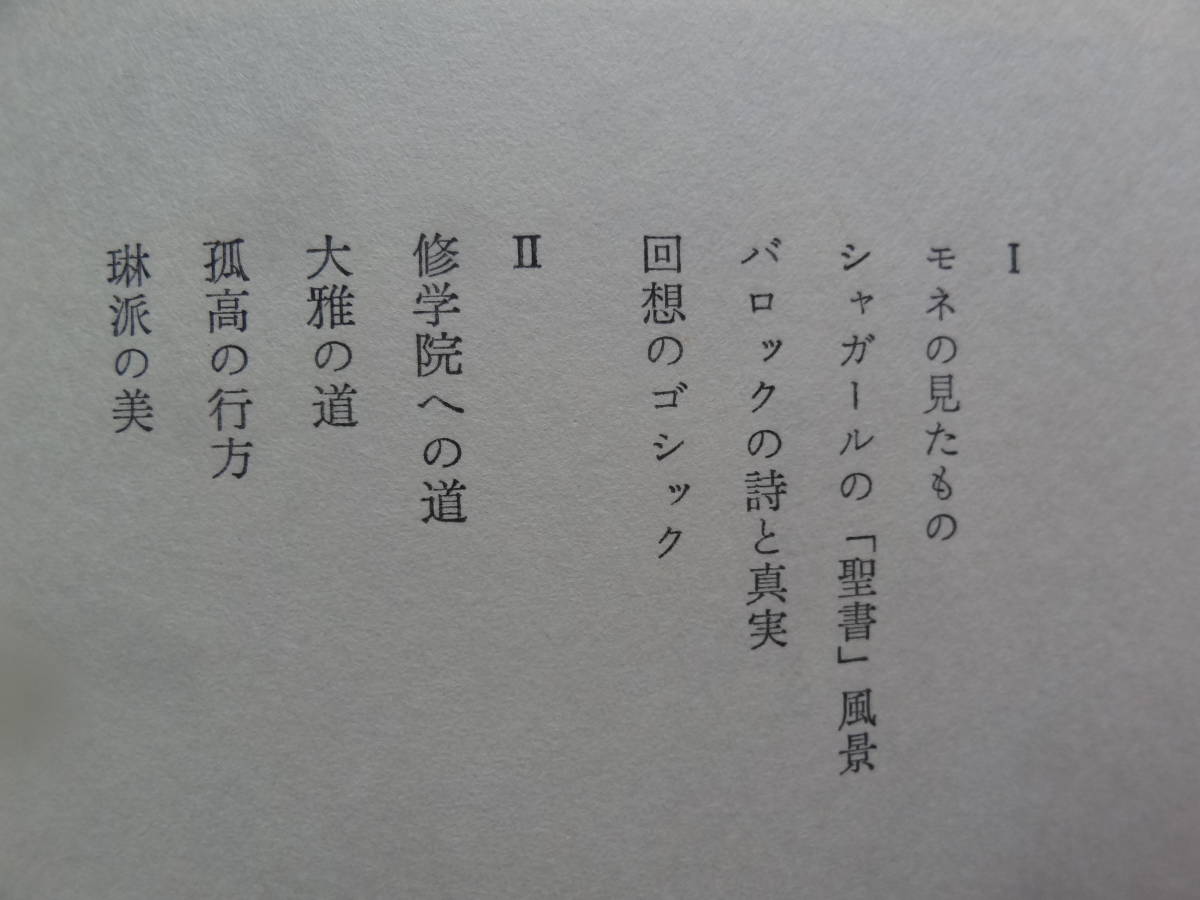 I
モネの見たもの
シャガールの「聖書」風景
バロックの詩と真実
回想のゴシック
II
修学院への道
大雅の道
孤高の行方
琳派の美